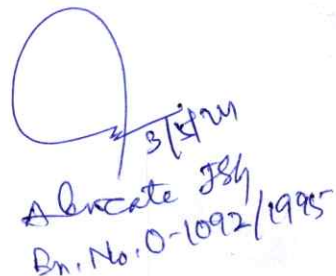 3/5/24
Advocate JSG
En. No. O-1092/1995